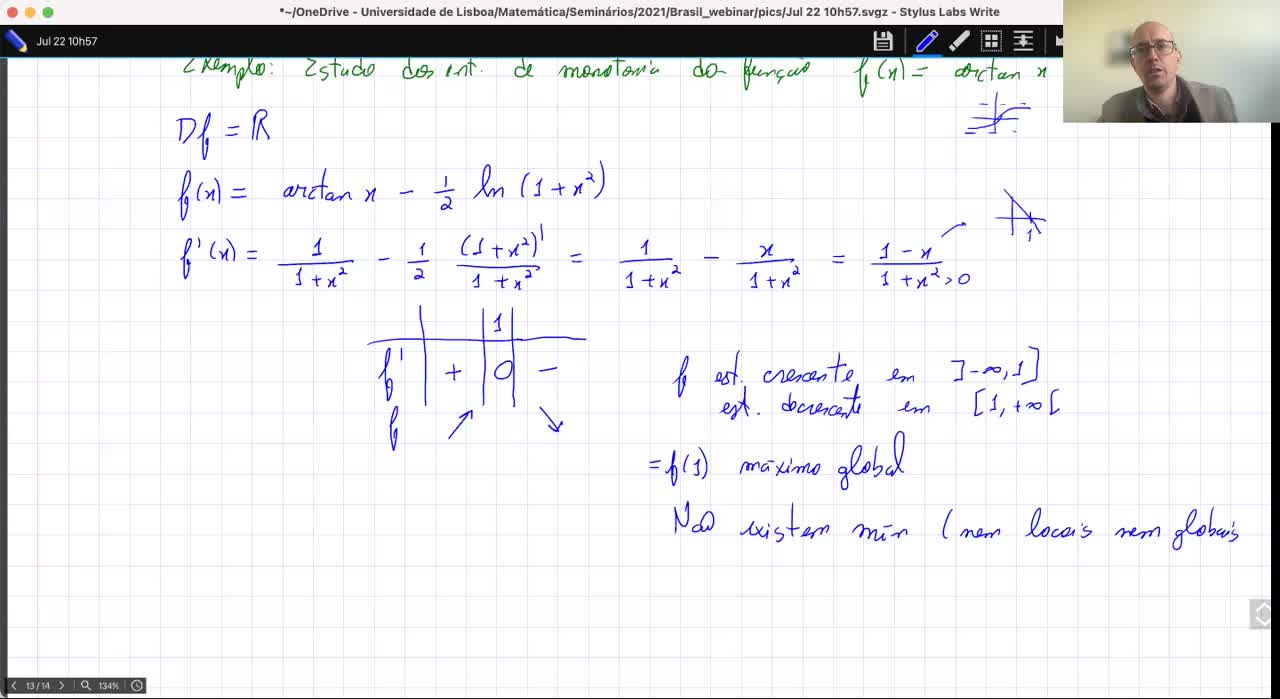 *~/OneDrive - Universidade de Lisboa/Matemática/Seminários/2021/Brasil_webinar/pics/Jul 22 10h57.svgz - Stylus Labs Write
Jul 22 10h57
Exemplo: Estudo dos int. de monotonia da função f(x) = arctan x
Df = ℝ
f(x) = arctan x - 1/2 ln (1 + x²)
f'(x) = 1/(1+x²) - 1/2 (1+x²)'/(1+x²) = 1/(1+x²) - x/(1+x²) = (1-x)/(1+x²) > 0
1
1
f' + 0 -
f ↗ ↘
f est. crescente em ]-∞, 1]
est. decrescente em [1, +∞[
= f(1) máximo global
Não existem mín (nem locais nem globais
13 / 14
134%